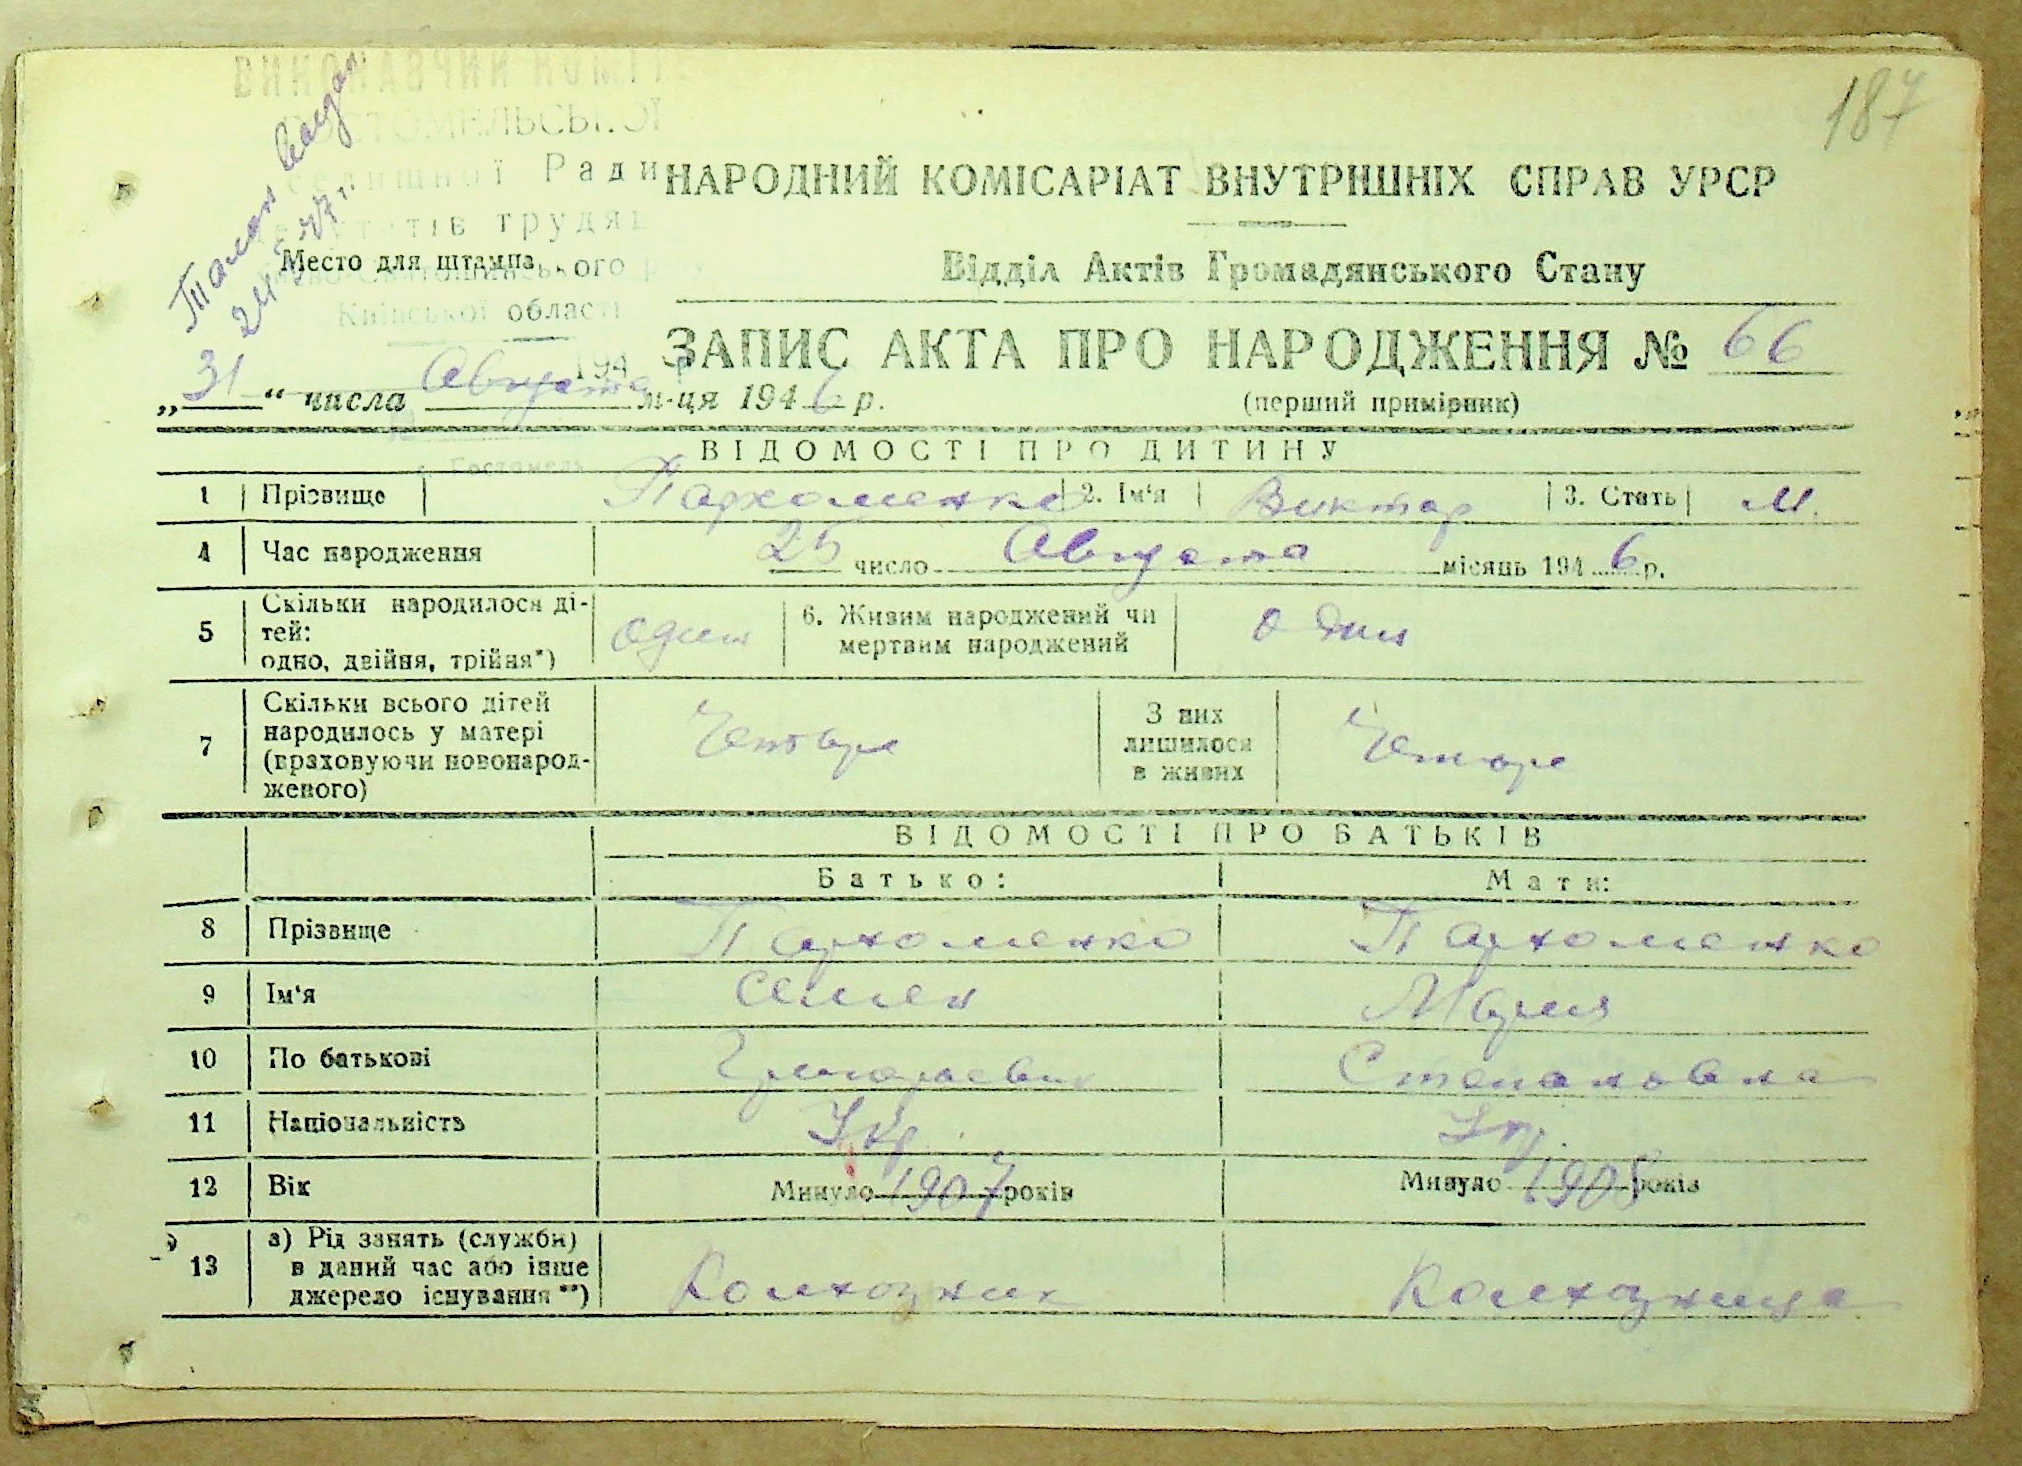 187
ВИКОНАВЧИЙ КОМІТ
ГОСТОМЕЛЬСЬКОЇ
селищної Ради
депутатів трудящ
Київської області
194
Талон выдан
24/5 47 г.
НАРОДНИЙ КОМІСАРІАТ ВНУТРІШНІХ СПРАВ УРСР
Відділ Актів Громадянського Стану
Место для штампа
ЗАПИС АКТА ПРО НАРОДЖЕННЯ № 66
„31“ числа Августа м-ця 1946 р. (перший примірник)
ВІДОМОСТІ ПРО ДИТИНУ
1 Прізвище Пархоменко 2. Ім'я Виктор 3. Стать М.
4 Час народження 25 число Августа місяць 1946 р.
5 Скільки народилося ді-
тей:
одно, двійня, трійня*) один
6. Живим народжений чи
мертвим народжений один
7 Скільки всього дітей
народилось у матері
(враховуючи новонарод-
женого) Четыре
З них
лишилося
в живих Четыре
ВІДОМОСТІ ПРО БАТЬКІВ
Батько: Мати:
8 Прізвище Пархоменко Пархоменко
9 Ім'я Семен Мария
10 По батькові Григорьевич Степановна
11 Національність Укр. Укр.
12 Вік Минуло 1907 років Минуло 1908 років
13 а) Рід занять (служби)
в даний час або інше
джерело існування **) Колхозник Колхозница